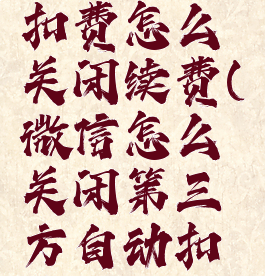 扣费怎么
关闭续费(
微信怎么
关闭第三
方自动扣